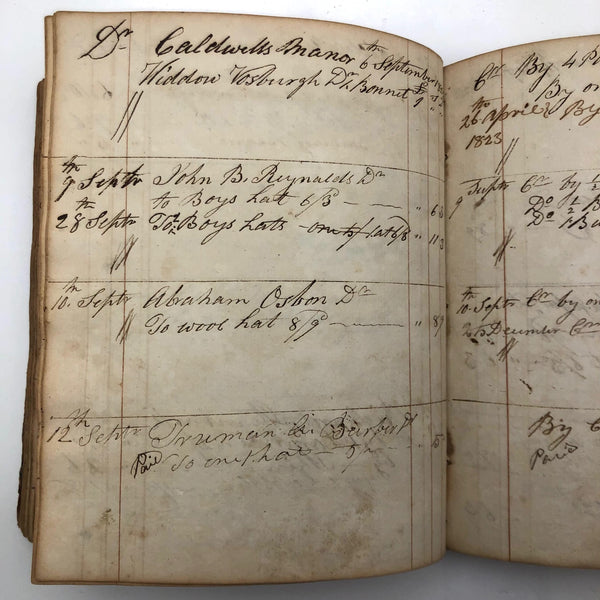 Dr Caldwells Manor 6th September
Widdow Vosburgh Dr. Bonnet
9th Septr John B. Reynalds Dr
to Boys hat 6/3 " 6 3
28th Septr To 2 Boys hats " 11 3
10th Septr Abraham Osbon Dr
To wool hat 8/9 " 8 9
12th Septr Truman Barber Dr
Paid To one hat
Cr By 4
By on
26th April By
1823
9 Septr Cr by 1/2
Do 1/2 B
Do 1/2 Bu
10th Septr Cr by on
2 December Cr
By C
Paid